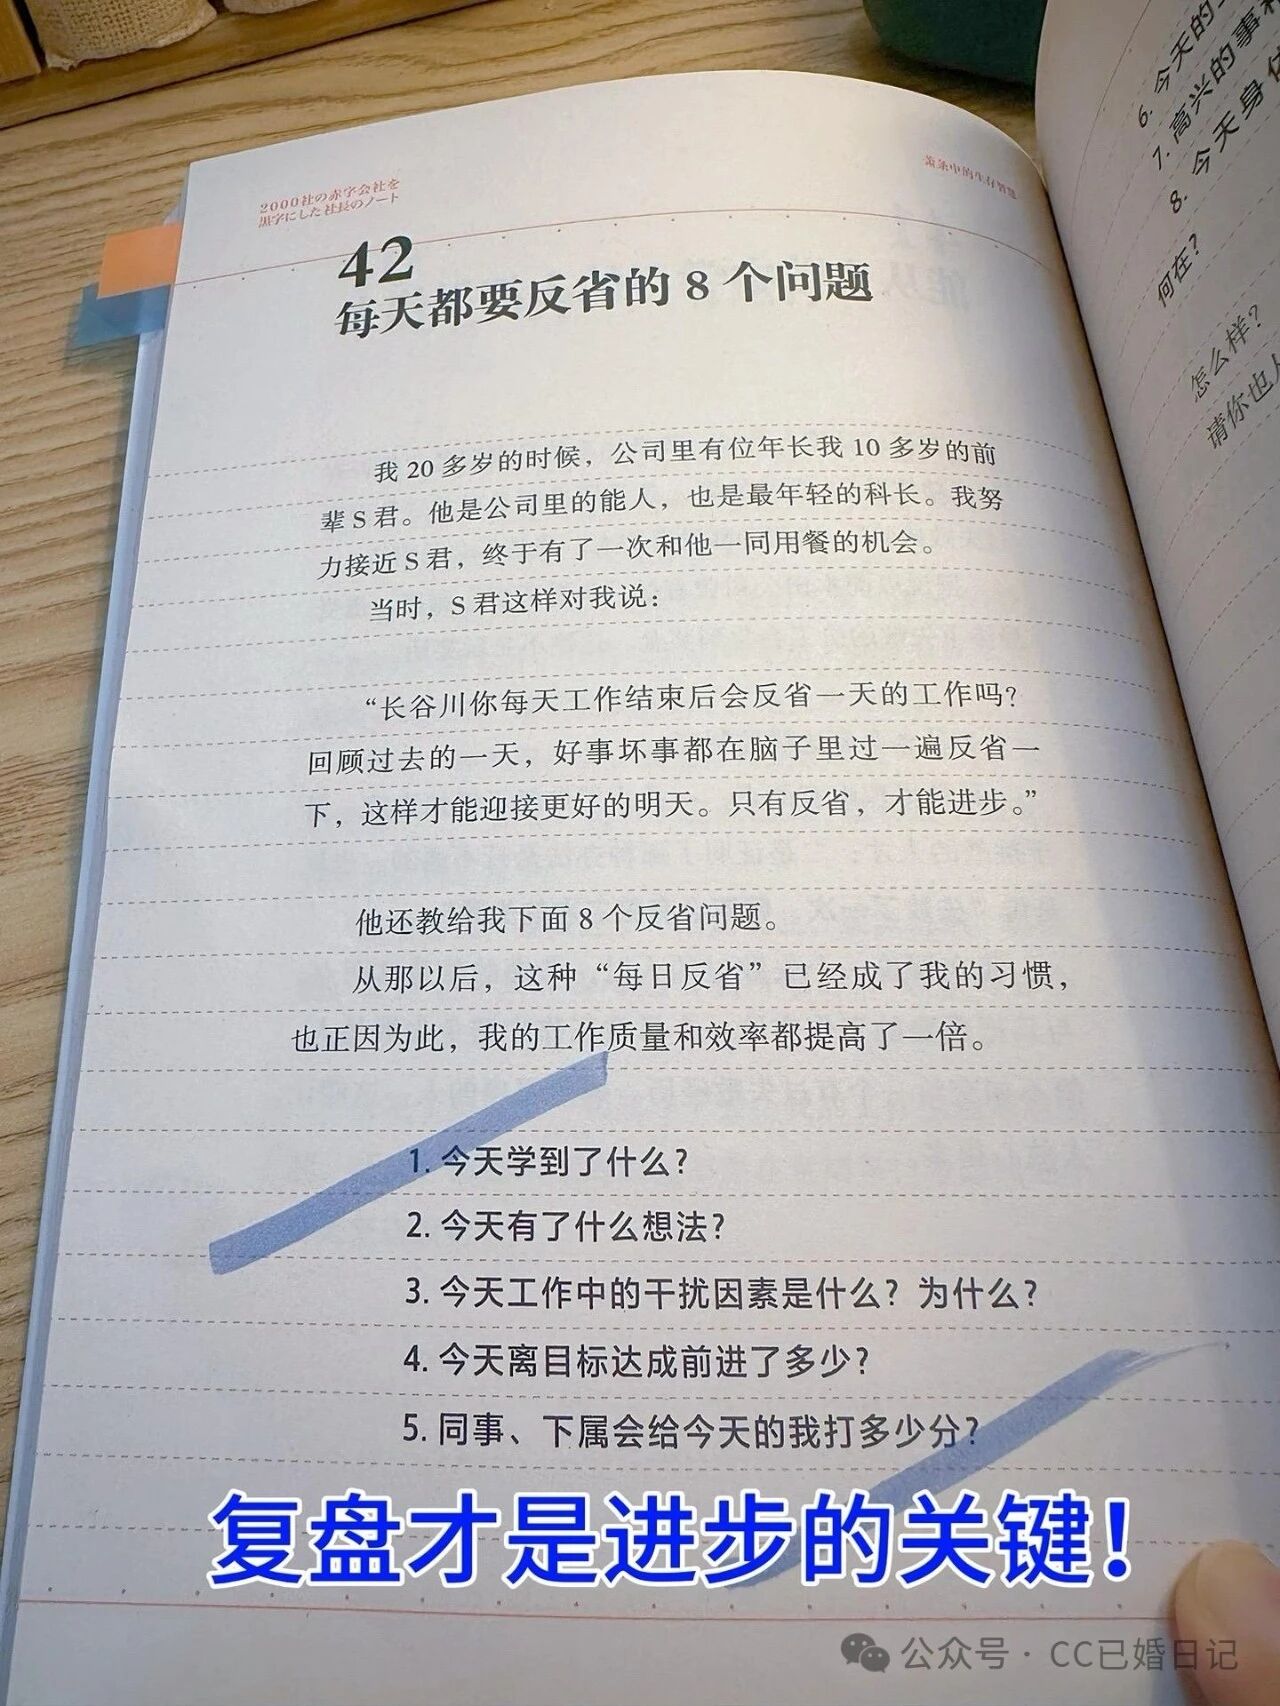 2000社の赤字会社を
黒字にした社長のノート
萧条中的生存智慧
42
每天都要反省的 8 个问题
我 20 多岁的时候，公司里有位年长我 10 多岁的前
辈 S 君。他是公司里的能人，也是最年轻的科长。我努
力接近 S 君，终于有了一次和他一同用餐的机会。
当时，S 君这样对我说：
“长谷川你每天工作结束后会反省一天的工作吗？
回顾过去的一天，好事坏事都在脑子里过一遍反省一
下，这样才能迎接更好的明天。只有反省，才能进步。”
他还教给我下面 8 个反省问题。
从那以后，这种“每日反省”已经成了我的习惯，
也正因为此，我的工作质量和效率都提高了一倍。
1. 今天学到了什么？
2. 今天有了什么想法？
3. 今天工作中的干扰因素是什么？为什么？
4. 今天离目标达成前进了多少？
5. 同事、下属会给今天的我打多少分？
复盘才是进步的关键！
6. 今天的
7. 高兴的事
8. 今天身
何在？
怎么样？
请你也
公众号 · CC已婚日记